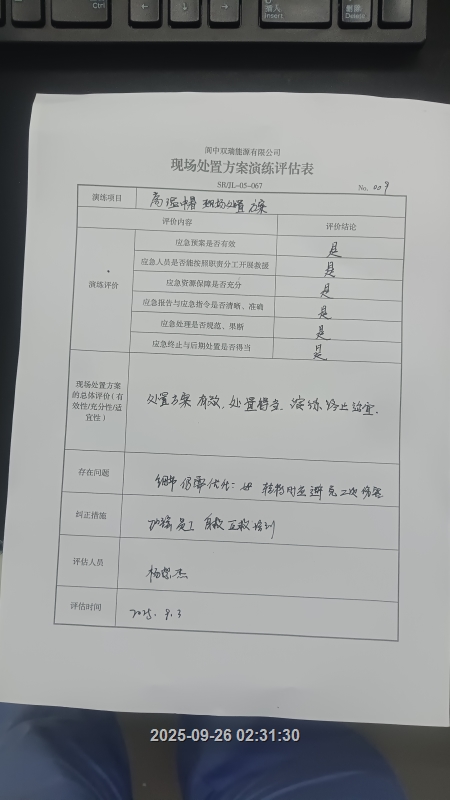 Ctrl
插入
Insert
删除
Delete
阆中双瑞能源有限公司
现场处置方案演练评估表
SR/JL-05-067
No. 009
演练项目
高温中暑现场处置方案
评价内容
评价结论
演练评价
应急预案是否有效
是
应急人员是否能按照职责分工开展救援
是
应急资源保障是否充分
是
应急报告与应急指令是否清晰、准确
是
应急处理是否规范、果断
是
应急终止与后期处置是否得当
是
现场处置方案
的总体评价（有
效性/充分性/适
宜性）
处置方案有效，处置得当，演练终止适宜.
存在问题
细节仍需优化：如 转移时应避免二次伤害
纠正措施
加强员工自救互救培训
评估人员
杨
杰
评估时间
2025.9.3
2025-09-26 02:31:30